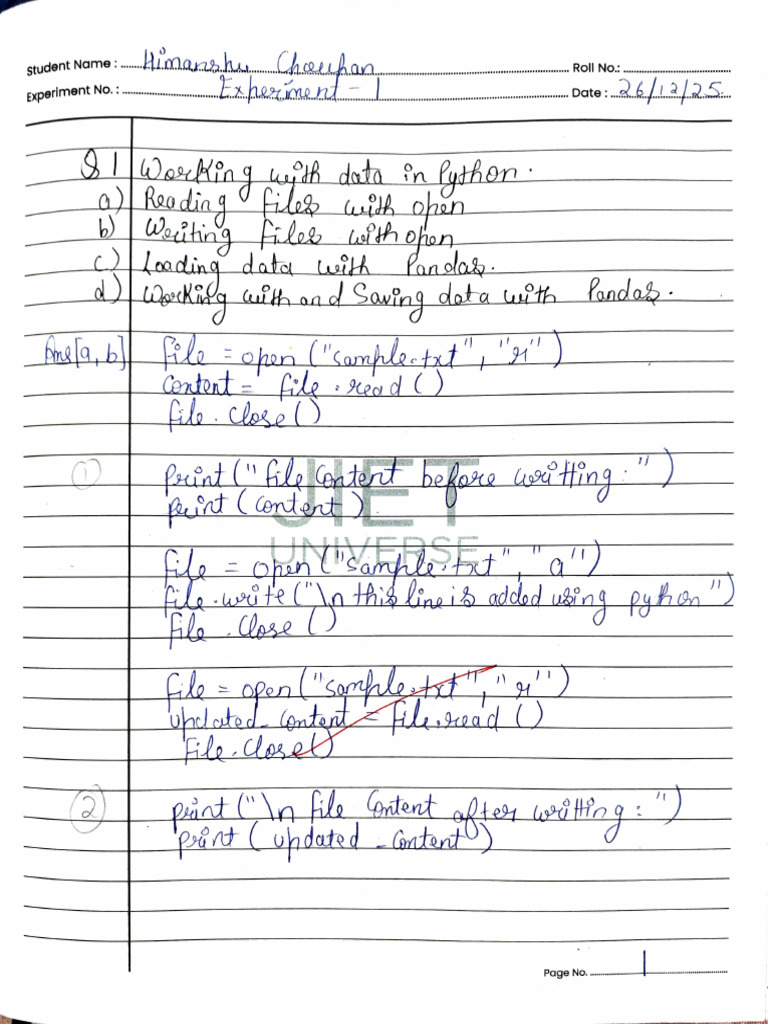 Student Name : Himanshu Chouhan Roll No.:
Experiment No. : Experiment - 1 Date : 26/12/25
Q 1 Working with data in Python.
a) Reading files with open
b) Writing files with open
c) Loading data with Pandas.
d) Working with and Saving data with Pandas.
Ans[a, b] file = open ("sample.txt", "r")
content = file.read()
file.close()
JIET
UNIVERSE
① print(" file content before writting:")
print (content)
file = open("sample.txt", "a")
file.write("\n this line is added using python")
file.close()
file = open("sample.txt", "r")
updated_content = file.read()
file.close()
② print("\n file Content after writting:")
print( updated_content)
Page No. 1